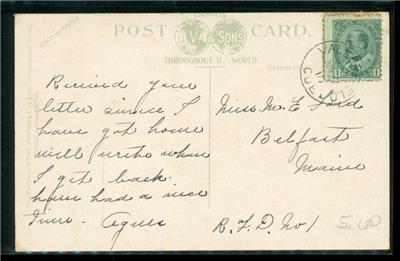 POST CARD.
V-A & SONS
THROUGHOUT D. WORLD.
Received your
letter since I
have got home
will write when
I get back.
have had a nice
time - Agnes
Miss M. E. Ford
Belfast
Maine
R.F.D. No 1
5.00
1 1